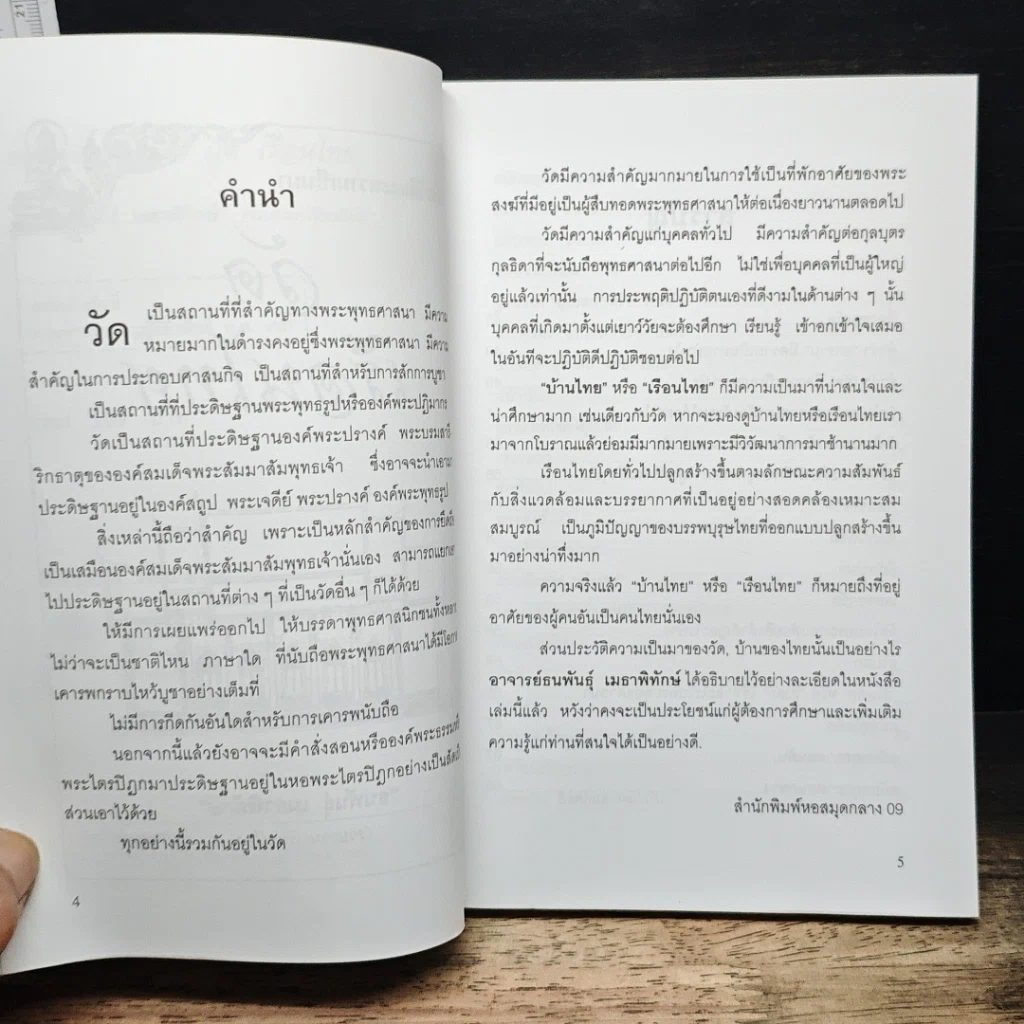 คำนำ
วัด เป็นสถานที่ที่สำคัญทางพระพุทธศาสนา มีความ
หมายมากในดำรงคงอยู่ซึ่งพระพุทธศาสนา มีความ
สำคัญในการประกอบศาสนกิจ เป็นสถานที่สำหรับการสักการบูชา
เป็นสถานที่ที่ประดิษฐานพระพุทธรูปหรือองค์พระปฏิมากร
วัดเป็นสถานที่ประดิษฐานองค์พระปรางค์ พระบรมสารี
ริกธาตุขององค์สมเด็จพระสัมมาสัมพุทธเจ้า ซึ่งอาจจะนำเอามา
ประดิษฐานอยู่ในองค์สถูป พระเจดีย์ พระปรางค์ องค์พระพุทธรูป
สิ่งเหล่านี้ถือว่าสำคัญ เพราะเป็นหลักสำคัญของการ
เป็นเสมือนองค์สมเด็จพระสัมมาสัมพุทธเจ้านั่นเอง สามารถ
ไปประดิษฐานอยู่ในสถานที่ต่าง ๆ ที่เป็นวัดอื่น ๆ ก็ได้ด้วย
ให้มีการเผยแพร่ออกไป ให้บรรดาพุทธศาสนิกชน
ไม่ว่าจะเป็นชาติไหน ภาษาใด ที่นับถือพระพุทธศาสนาได้มีโอกาส
เคารพกราบไหว้บูชาอย่างเต็มที่
ไม่มีการกีดกันอันใดสำหรับการเคารพนับถือ
นอกจากนี้แล้วยังอาจจะมีคำสั่งสอนหรือองค์พระธรรมที่
พระไตรปิฎกมาประดิษฐานอยู่ในหอพระไตรปิฎกอย่างเป็น
ส่วนเอาไว้ด้วย
ทุกอย่างนี้รวมกันอยู่ในวัด
4
วัดมีความสำคัญมากมายในการใช้เป็นที่พักอาศัยของพระ
สงฆ์ที่มีอยู่เป็นผู้สืบทอดพระพุทธศาสนาให้ต่อเนื่องยาวนานตลอดไป
วัดมีความสำคัญแก่บุคคลทั่วไป มีความสำคัญต่อกุลบุตร
กุลธิดาที่จะนับถือพุทธศาสนาต่อไปอีก ไม่ใช่เพื่อบุคคลที่เป็นผู้ใหญ่
อยู่แล้วเท่านั้น การประพฤติปฏิบัติตนเองที่ดีงามในด้านต่าง ๆ นั้น
บุคคลที่เกิดมาตั้งแต่เยาว์วัยจะต้องศึกษา เรียนรู้ เข้าอกเข้าใจเสมอ
ในอันที่จะปฏิบัติดีปฏิบัติชอบต่อไป
"บ้านไทย" หรือ "เรือนไทย" ก็มีความเป็นมาที่น่าสนใจและ
น่าศึกษามาก เช่นเดียวกับวัด หากจะมองดูบ้านไทยหรือเรือนไทยเรา
มาจากโบราณแล้วย่อมมีมากมายเพราะมีวิวัฒนาการมาช้านานมาก
เรือนไทยโดยทั่วไปปลูกสร้างขึ้นตามลักษณะความสัมพันธ์
กับสิ่งแวดล้อมและบรรยากาศที่เป็นอยู่อย่างสอดคล้องเหมาะสม
สมบูรณ์ เป็นภูมิปัญญาของบรรพบุรุษไทยที่ออกแบบปลูกสร้างขึ้น
มาอย่างน่าทึ่งมาก
ความจริงแล้ว "บ้านไทย" หรือ "เรือนไทย" ก็หมายถึงที่อยู่
อาศัยของผู้คนอันเป็นคนไทยนั่นเอง
ส่วนประวัติความเป็นมาของวัด, บ้านของไทยนั้นเป็นอย่างไร
อาจารย์ธนพันธุ์ เมธาพิทักษ์ ได้อธิบายไว้อย่างละเอียดในหนังสือ
เล่มนี้แล้ว หวังว่าคงจะเป็นประโยชน์แก่ผู้ต้องการศึกษาและเพิ่มเติม
ความรู้แก่ท่านที่สนใจได้เป็นอย่างดี.
สำนักพิมพ์หอสมุดกลาง 09
5
21